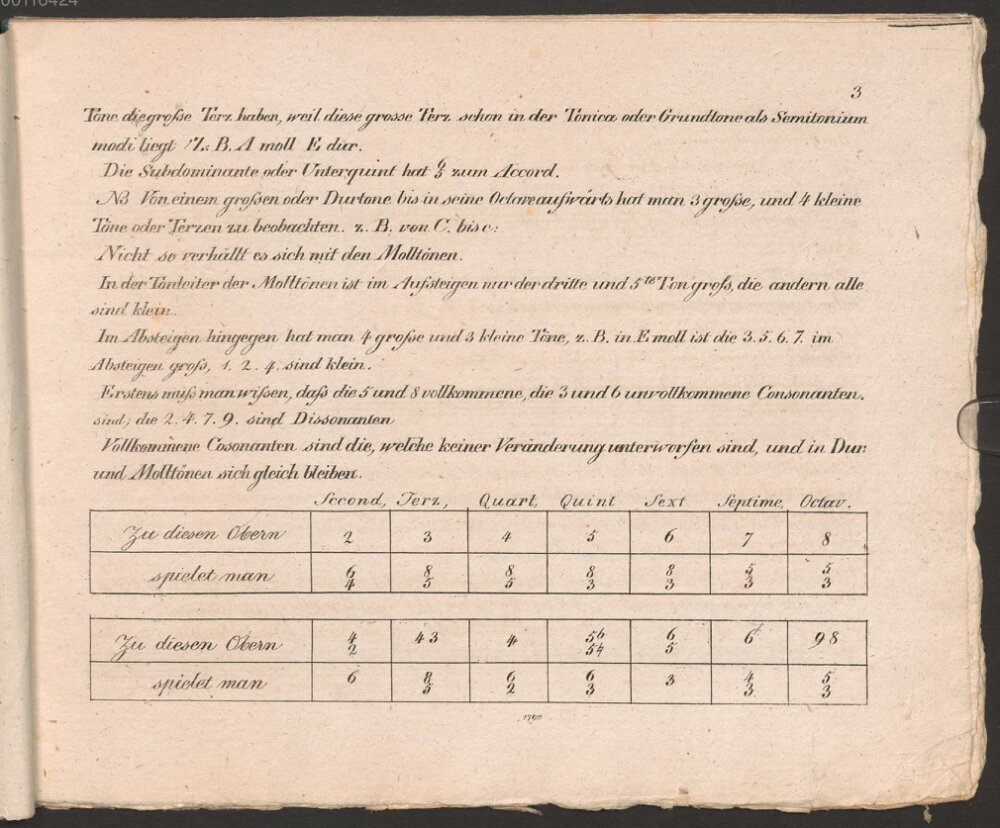 00118424
3
Töne die große Terz haben, weil diese grosse Terz schon in der Tonica oder Grundtone als Semitonium
modi liegt z. B. A moll E dur.
Die Subdominante oder Unterquint hat 6/5 zum Accord.
NB Von einem großen oder Durtone bis in seine Octave aufwärts hat man 3 große, und 4 kleine
Töne oder Terzen zu beobachten. z. B. von C. bis c:
Nicht so verhällt es sich mit den Molltönen.
In der Tonleiter der Molltönen ist im Aufsteigen nur der dritte und 5te Ton groß, die andern alle
sind klein.
Im Absteigen hingegen hat man 4 große und 3 kleine Töne, z. B. in E moll ist die 3. 5. 6. 7. im
Absteigen groß, 1. 2. 4. sind klein.
Erstens muß man wißen, daß die 5 und 8 vollkommene, die 3 und 6 unvollkommene Consonanten.
sind; die 2. 4. 7. 9. sind Dissonanten
Vollkommene Cosonanten sind die, welche keiner Veränderung unterworfen sind, und in Dur:
und Molltönen sich gleich bleiben.
Second, Terz, Quart, Quint Sext Septime, Octav.
Zu diesen Obern 2 3 4 5 6 7 8
spielet man 6/4 8/5 8/5 8/3 8/3 5/3 5/3
Zu diesen Obern 4/2 43 4 56/54 6/5 6 98
spielet man 6 8/5 6/2 6/3 3 4/3 5/3
1790